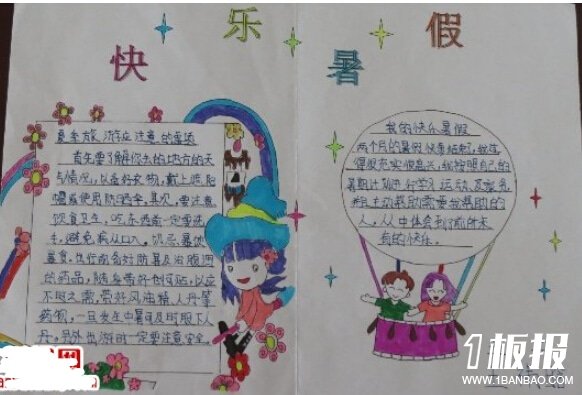 快乐暑假
夏季旅游应注意的事项
首先要了解你去的地方的天
气情况,以备好衣物,戴上遮阳
帽或使用防晒伞。其次,要注意
饮食卫生,吃东西前一定要洗
手,避免病从口入。切忌暴饮
暴食,出行前会好防暑及治腹泻
的药品,随身带好创可贴,以应
不时之需,带好风油精、人丹等
药物,一旦发生中暑可及时服下人
丹。另外出游时一定要注意安全。
我的快乐暑假
两个月的暑假快要结束了,我过
得很充实很高兴,我按照自己的
暑期计划进行学习、运动、及家务
人,从中体会到了前所未
有的快乐。
1板报
WWW.1BANBAO.COM